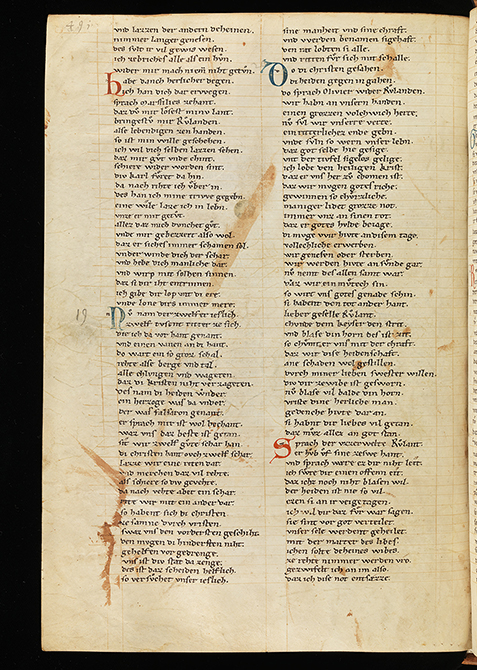 vnd lazzen der andern deheinen.
nimmer langer genesen.
des svlt ir vil gewis wesen.
ich zebriches alle als ein hvn.
wider mir mach niem niht getvn.
habe danch herlicher degen.
ich han dich dar erwegen.
sprach marsilies zehant.
daz dv mir losest miny lant.
bringestv mir Rvlanden.
alle lebendigen zen handen.
so ist min wille geschehen.
ich wil dich selben lazzen sehen.
daz mir gvt vnde chint.
schiere wider worden sint.
div karl fvret da hin.
da nach rihte ich vber in.
des han ich mine trwe gegebn.
eine wile laze ich in lebn.
vnz er mir getvt.
allez daz mich dvnchet gvt.
vnde mir gehezzet also wol.
daz er sichel immer schamen sol.
vnder winde dich der schar.
vnd hebe dich manliche dar.
vnd wirp mit solhen sinnen.
daz si dir iht entrinnen.
ich gibe dir lop vnt di ere.
vnde lone dirs immer mere.
Nv nam der zwelfter ieslich.
zwelf tvsent ritter ze sich.
die ich da vor hant genant.
vnd einen vanen an di hant.
do wart ein so groz schal.
rehte alse berge vnd tal.
alle chlvngen vnd wageten.
daz di kristen niht verzageten.
des nam di heiden wnder.
ein herzoge was da vnder.
der was falsaron genant.
er sprach mir ist wol bechant.
waz vns daz beste ist getan.
sit wir zwelf gvte schar han
di christen hant ovch zwelf schar.
lazze wir eine riten dar.
vnd merchen daz vil rehte.
als schiere so div gevehte.
da nach vehte aber ein schar.
rite wir mit ein ander dar.
so habent sich di christen.
ze samine dvrch vristen.
swaz vns den vordersten geschiht.
den mvgen di hindersten niht.
gehelfen vor gedrenge.
vns ist div stat da zenge.
des ist daz scheiden helflich.
so versvcher vnser ieslich.
sine manheit vnd sine chraft.
vnd werden benamen sigehaft.
den rat lobten si alle.
vnd ritten fvr sich mit schalle.
Do di christen gesahen.
di heiden gegen in gahen.
do sprach olivier wider Rvlanden.
wir habn an vnsern handen.
einen grozzen volchwich herte.
nv svl wir vnserte verte.
ein ritterlichez ende gebn.
vnde svln so wern vnser lebn.
daz got selbe hie gesige.
vnt der tivfel sigelos gelige.
ich lobe den heiligen krist.
daz er vns her zv chomen ist.
daz wir mvgen gotes riche.
gewinnen so chvrzliche.
maniger lidet grozze not.
immer vnz an sinen tot.
daz er gotes hvlde beiage.
di mvge wir hivte an disem tage.
vollechliche erwerben.
wir genesen oder sterben.
wir werden hivte an svnde gar.
nv nemt des allen samt war.
var wir ein mvtech sin.
so wirt vns gotes genade schin.
si badent den tot ander hant.
lieber geselle Rvlant.
chvnde dem keyser den strit.
vnd blase din horn des ist zit.
so chvmet er vns mit der chraft.
daz wir dise heidenschaft.
ane schaden wol gestillen.
dvrch miner lieben swester willen.
div dir zewibe ist gesworn.
nv blase vil balde din horn.
wilde dine herliche man.
gedenche hivte dar an.
si habnt dir liebes vil getan.
daz mvz allez an got stan.
Sprach der vzerwelte Rvlant.
er hvb vf sine zeswe hant.
vnd sprach waere ez dir niht leit.
ich swre dir einen offenen eit.
daz ichz noch niht blasen wil.
der heiden ist nie so vil.
ezen si an ir veige tagen.
ich wil dir daz fvr war sagen.
sie sint vor got verteilet.
vnser sele werdent geheilet.
mit der marter des libes.
ichen solte deheines wibes.
ze rehte nimmer werden vro.
gezwifelt ich an im also.
daz ich dise not entsazze.